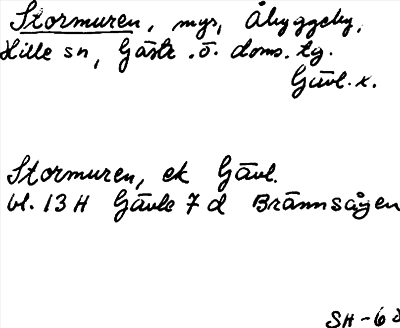 Stormuren, myr, Åbyggeby,
Hille sn, Gästr. ö. doms. tg.
Gävl. x.
Stormuren, ek Gävl.
bl. 13 H Gävle 7 d Brännsågen
SH-68